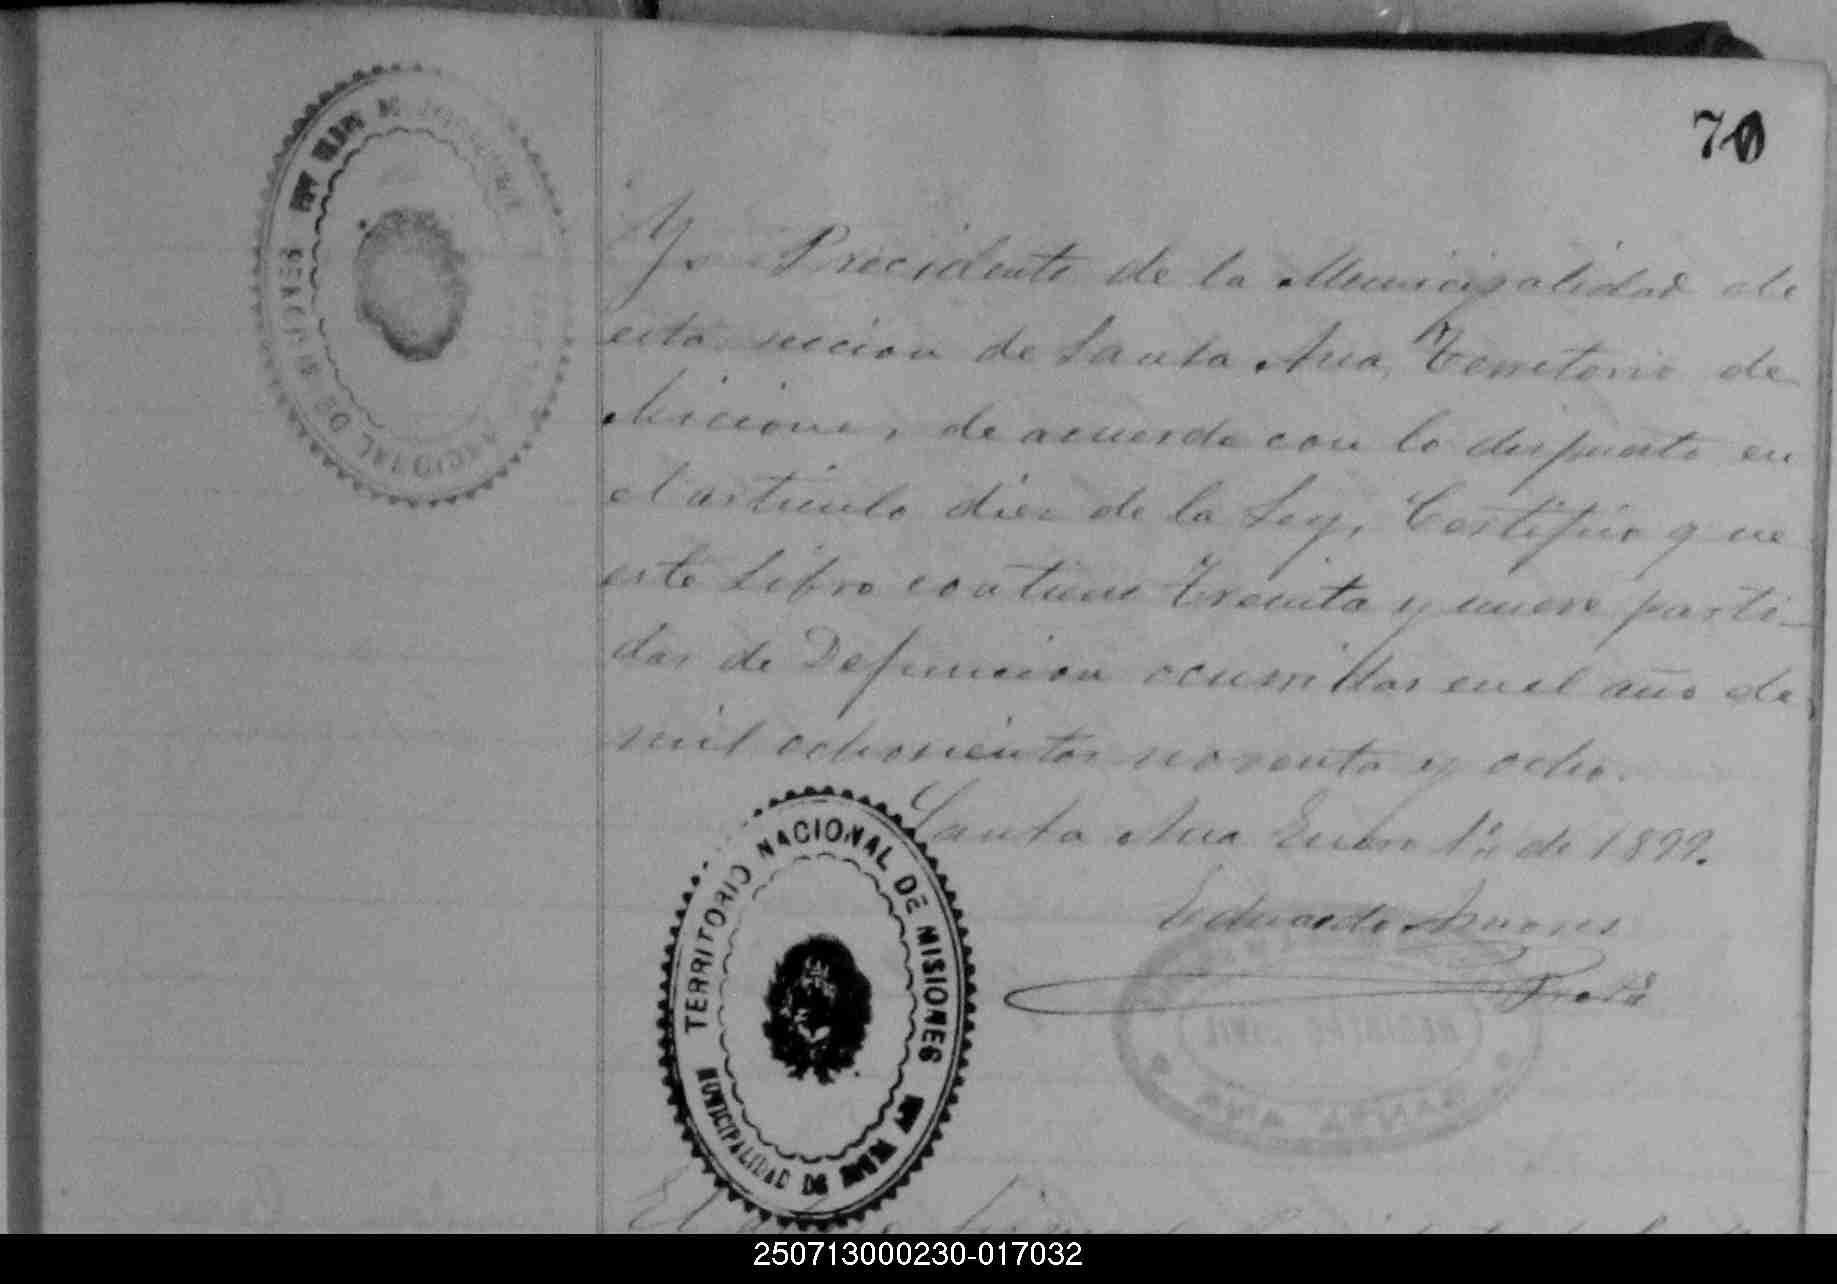 70
Yo Precidente de la Municipalidad de
esta seccion de Santa Ana, Territorio de
Miciones, de acuerdo con lo dispuesto en
el articulo diez de la Ley, Certifico que
este Libro contiene treinta y nueve parti-
das de Defuncion ocurridas en el año de
mil ochocientos noventa y ocho.
Santa Ana Enero 1º de 1899.
Eduardo
TERRITORIO NACIONAL DE MISIONES
MUNICIPALIDAD DE
REGISTRO CIVIL
SANTA ANA
El
250713000230-017032